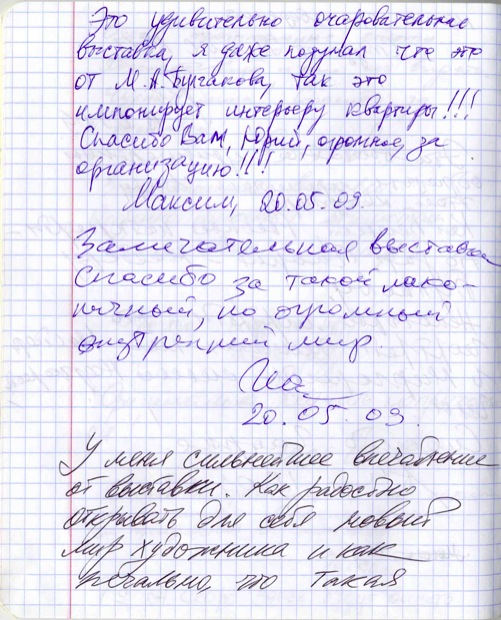 Это удивительно очаровательная
выставка, я даже подумал что это
от М.А.Булгакова, так это
импонирует интерьеру квартиры!!!
Спасибо Вам, Юрий, огромное, за
организацию!!!
Максим, 20.05.09.
Замечательная выставка
Спасибо за такой лако-
ничный, но огромный
внутренний мир.
20.05.09.
У меня сильнейшее впечатление
от выставки. Как радостно
открывать для себя новый
мир художника и как
печально, что такая